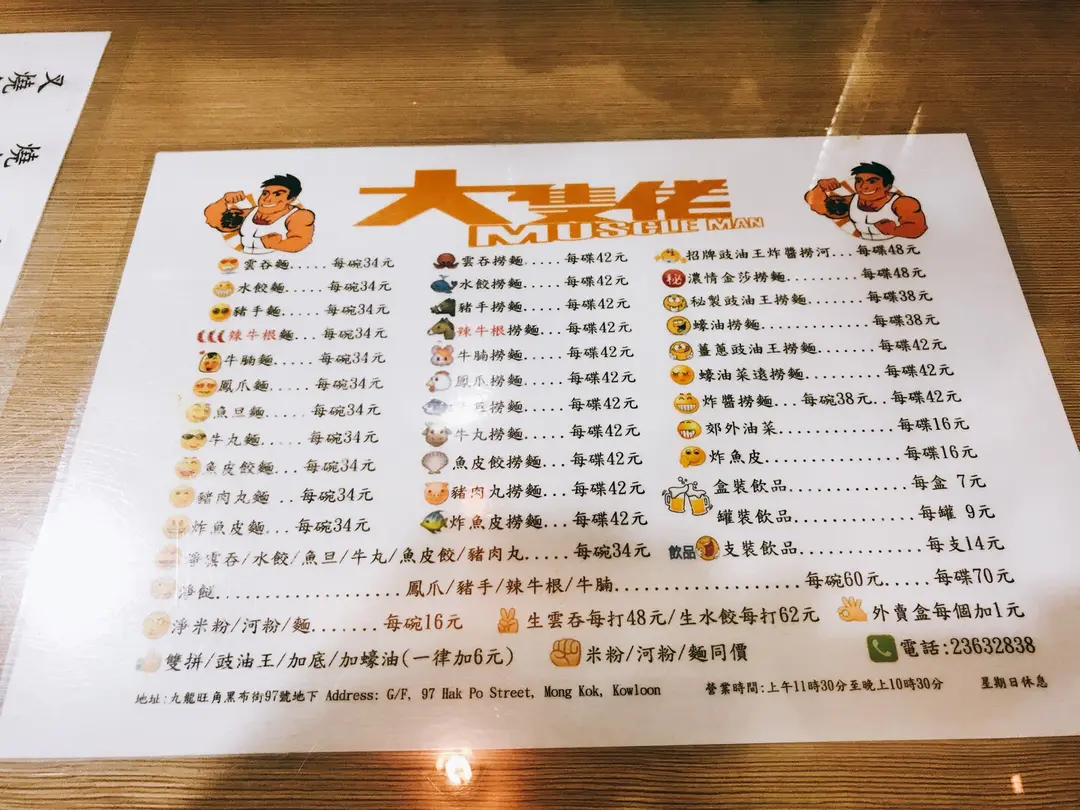 叉燒
燒
大隻佬
MUSCLE MAN
雲吞麵.....每碗34元
水餃麵.....每碗34元
豬手麵.....每碗34元
辣牛根麵...每碗34元
牛腩麵.....每碗34元
鳳爪麵.....每碗34元
魚旦麵......每碗34元
牛丸麵.....每碗34元
魚皮餃麵...每碗34元
豬肉丸麵 ..每碗34元
炸魚皮麵...每碗34元
雲吞撈麵.....每碟42元
水餃撈麵.....每碟42元
豬手撈麵.....每碟42元
辣牛根撈麵...每碟42元
牛腩撈麵.....每碟42元
鳳爪撈麵.....每碟42元
撈麵.....每碟42元
牛丸撈麵.....每碟42元
魚皮餃撈麵...每碟42元
豬肉丸撈麵...每碟42元
炸魚皮撈麵...每碟42元
招牌豉油王炸醬撈河...每碟48元
秘 濃情金莎撈麵........每碟48元
秘製豉油王撈麵.......每碟38元
蠔油撈麵............每碟38元
薑蔥豉油王撈麵.......每碟42元
蠔油菜遠撈麵.........每碟42元
炸醬撈麵...每碗38元..每碟42元
郊外油菜............每碟16元
炸魚皮..............每碟16元
盒裝飲品.............每盒 7元
罐裝飲品.............每罐 9元
飲品 支裝飲品.............每支14元
淨雲吞/水餃/魚旦/牛丸/魚皮餃/豬肉丸.....每碗34元
淨餸....................鳳爪/豬手/辣牛根/牛腩....................每碗60元.....每碟70元
淨米粉/河粉/麵.......每碗16元 生雲吞每打48元/生水餃每打62元 外賣盒每個加1元
雙拼/豉油王/加底/加蠔油(一律加6元) 米粉/河粉/麵同價 電話:23632838
地址:九龍旺角黑布街97號地下 Address: G/F, 97 Hak Po Street, Mong Kok, Kowloon 營業時間:上午11時30分至晚上10時30分 星期日休息